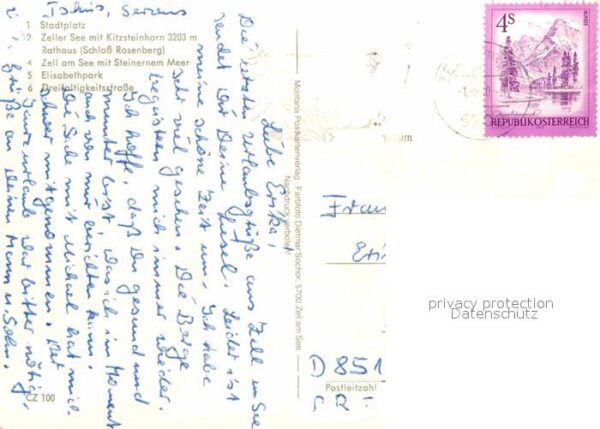 1 Stadtplatz
2 Zeller See mit Kitzsteinhorn 3203 m
Rathaus (Schloß Rosenberg)
4 Zell am See mit Steinernem Meer
5 Elisabethpark
6 Dreifaltigkeitsstraße
CZ 100
Liebe Erika!
Die letzten Urlaubsgrüße aus Zell im See
sendet Dir Deine Leider ist
meine schöne Zeit um - Ich habe
sehr viel gesehen. Die Berge
begeistern mich immer wieder.
Ich hoffe, daß Du gesund und
munter bist, was ich im Moment
auch von mir berichten kann.
Die Sache mit Michael hat mich
schwer mitgenommen. Der
ganze Urlaub war bitter nötig.
Grüße an Deinen Mann u. Sohn.
Montana Postkartenverlag · Farbfoto Dietmar Sochor, 5700 Zell am See
Nachdruck verboten!
4S
REPUBLIK ÖSTERREICH
Frau
D 851
Postleitzahl
privacy protection
Datenschutz